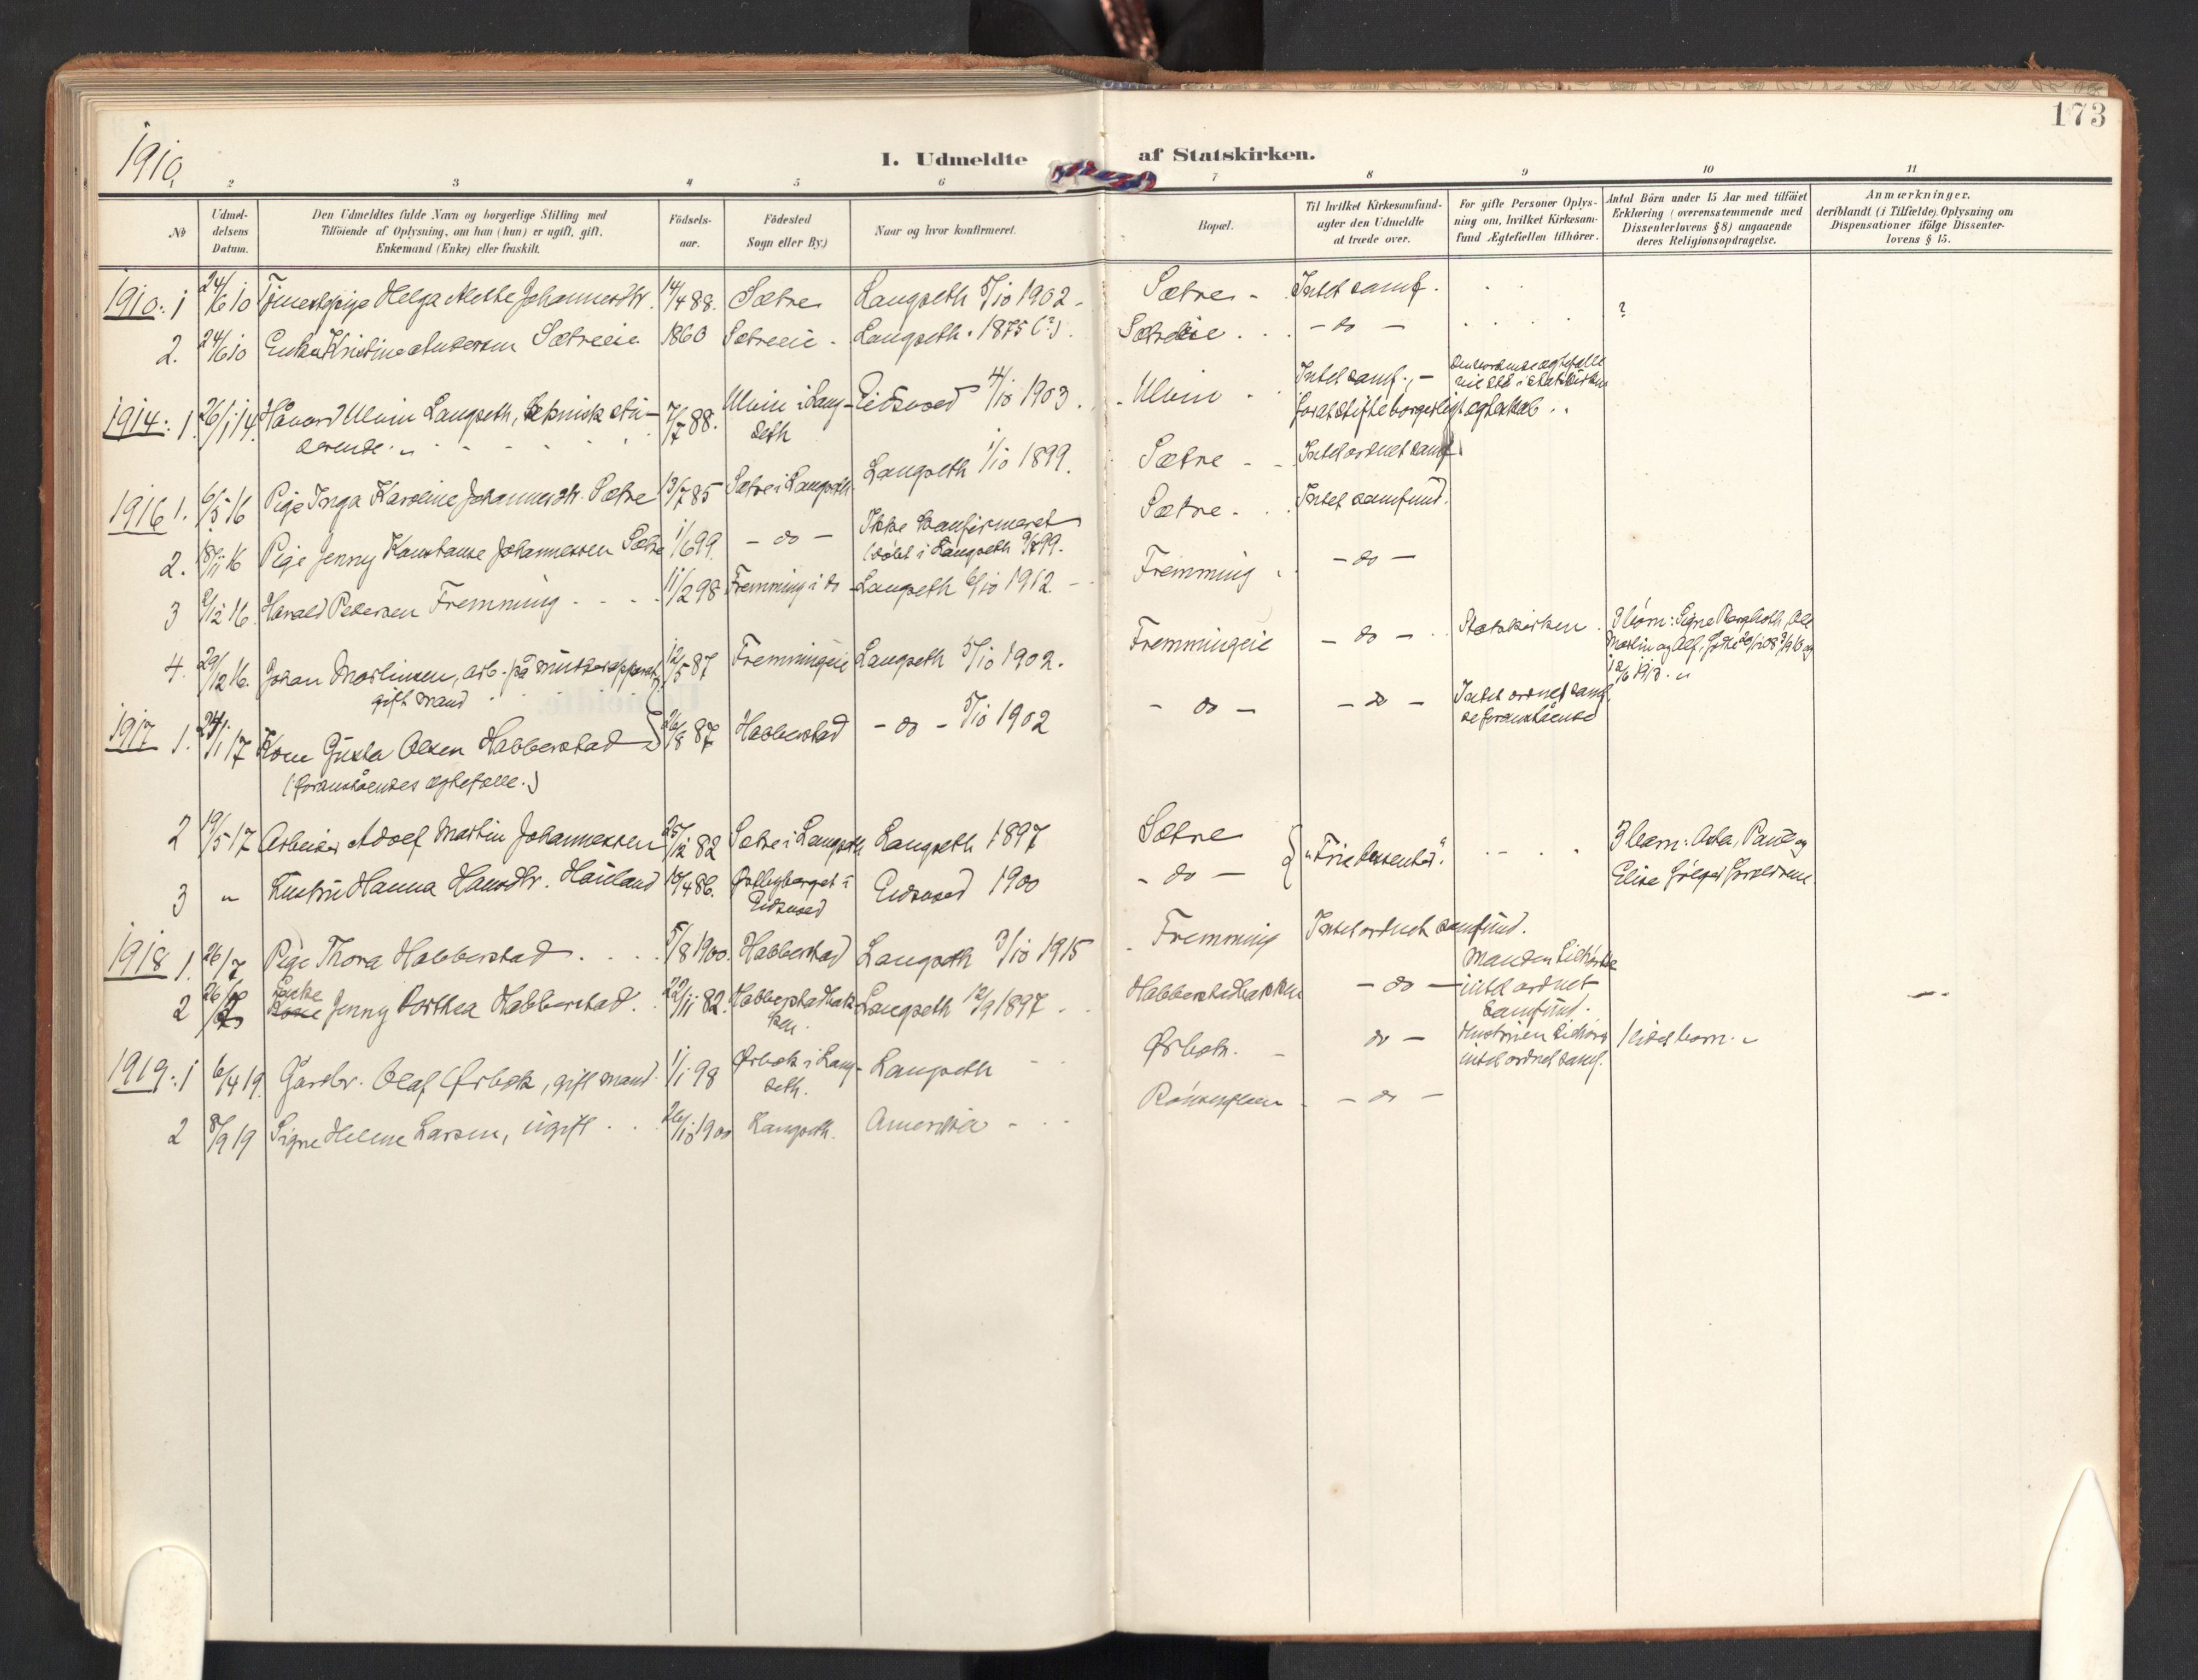 173
1910,
I. Udmeldte af Statskirken.
2 3 4 5 6 7 8 9 10 11
No
Udmel-
delsens
Datum.
Den Udmeldtes fulde Navn og borgerlige Stilling med
Tilföiende af Oplysning, om han (hun) er ugift, gift,
Enkemand (Enke) eller fraskilt.
Födsels-
aar.
Födested
Sogn eller By.)
Naar og hvor konfirmeret.
Bopæl.
Til hvilket Kirkesamfund-
agter den Udmeldte
at træde over.
For gifte Personer Oplys-
ning om, hvilket Kirkesam-
fund Ægtefællen tilhörer.
Antal Börn under 15 Aar med tilföiet
Erklæring (overensstemmende med
Dissenterlovens § 8) angaaende
deres Religionsopdragelse.
Anmærkninger.
deriblandt (i Tilfælde) Oplysning om
Dispensationer ifölge Dissenter-
lovens § 15.
1910: 1 24/6 10 Tjenestpige Helga Mette Johannesdtr. 14/4 88. Sætre Langseth 5/10 1902 - Sætre - Intet samf.
2. 24/6 10 Enke Kristine Andersen Sætreeie 1860 Sætreeie - Langseth. 1875 (?). Sætreeie - do - ?
1914: 1. 26/1 14. Håvard Ulvin Langseth, teknisk stu- 7/7 88. Ulvin i Lang- Eidsvold 4/10 1903. Ulvin Intet samf., - Den vordende ægtefælle
derende. seth for at stifte borgerligt ægteskab.
1916 1. 6/5 16 Pige Inga Karoline Johannesdtr. Sætre 13/7 85 Sætre i Langseth Langseth 1/10 1899. Sætre - Intet ordnet samf.
2. 18/11 16 Pige Jenny Konstanse Johannessen Sætre 1/6 99. - do - Ikke konfirmeret Sætre. Intet samfund.
(döbt i Langseth 9/7 99.
3 2/12 16. Harald Pedersen Fremming 11/2 98 Fremming i do Langseth 6/10 1912 - Fremming - do -
4. 29/12 16. Johan Martinsen, arb. på 12/5 87 Fremmingeie Langseth 5/10 1902. Fremmingeie - do - Statskirken. 3 börn: Signe
gift mand Martin og Alf, födte
1917 1. 24/1 17 Kone Gusta Olsen Habberstad 26/8 87 Habberstad - do - 5/10 1902 - do - - do - Intet ordnet samf.
(foranståendes ægtefælle.) se foranstående
2 19/5 17 Arbeider Adolf Martin Johannessen 25/12 82 Sætre i Langseth Langseth 1897 Sætre "Fri dissenter". 3 barn: Asta, Paul og
3 " Hustru Hanna Hansdtr. Hauland 18/4 86. Östbyberget i Eidsvold 1900 - do - Elise fölger foreldrene.
Eidsvold
1918 1. 26/7 Pige Thora Habberstad 5/8 1900. Habberstad Langseth 3/10 1915 Fremming Intet ordnet samfund.
2 26/7 Enke Jenny Dorthea Habberstad. 22/11 82. Habberstadbak- Langseth 12/9 1897. Habberstadbakken - do - Manden tilhörte
ken. intet ordnet
samfund.
1919: 1 6/4 19. Gårdbr. Olaf Ørbæk, gift mand. 1/1 98 Ørbæk i Lang- Langseth Ørbæk. do - Hustruen tilhører 1 litet barn.
seth. intet ordnet samf.
2 8/9 19 Signe Helene Larsen, ugift 26/10 1900 Langseth. Amerika - do -